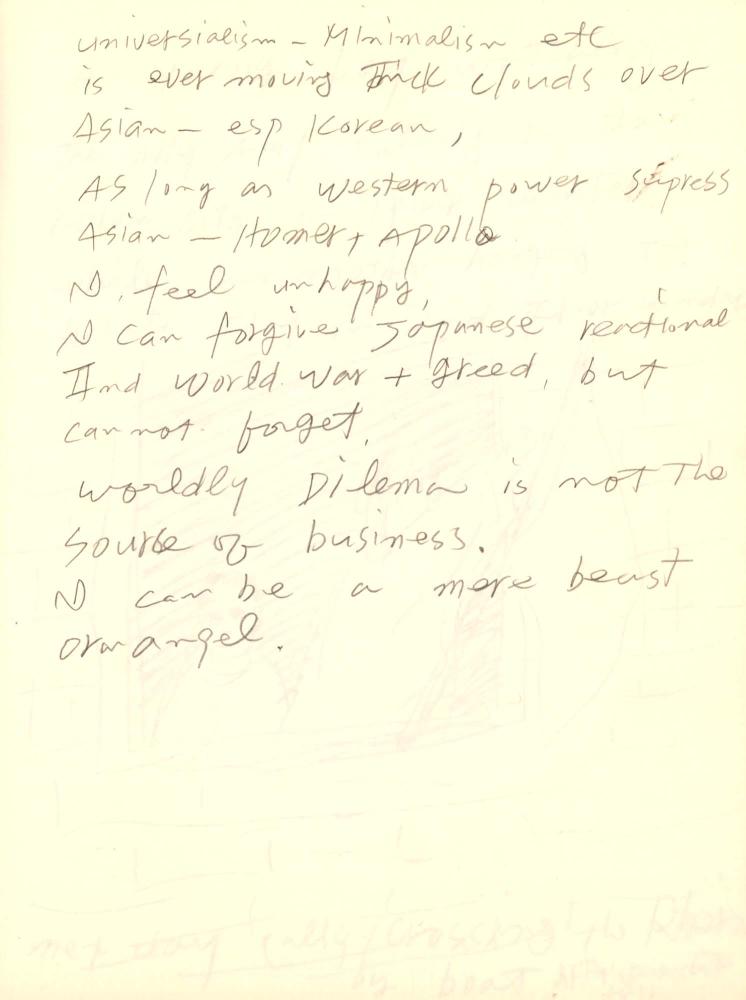 universialism - Minimalism etc
is ever moving Thick clouds over
Asian - esp Korean,
As long as western power supress
Asian - Homer + Apollo
N. feel unhappy,
N can forgive Japanese reactional
IInd World War + greed, but
cannot forget,
worldly Dilema is not The
sourse of business.
N can be a mere beast
or an angel.